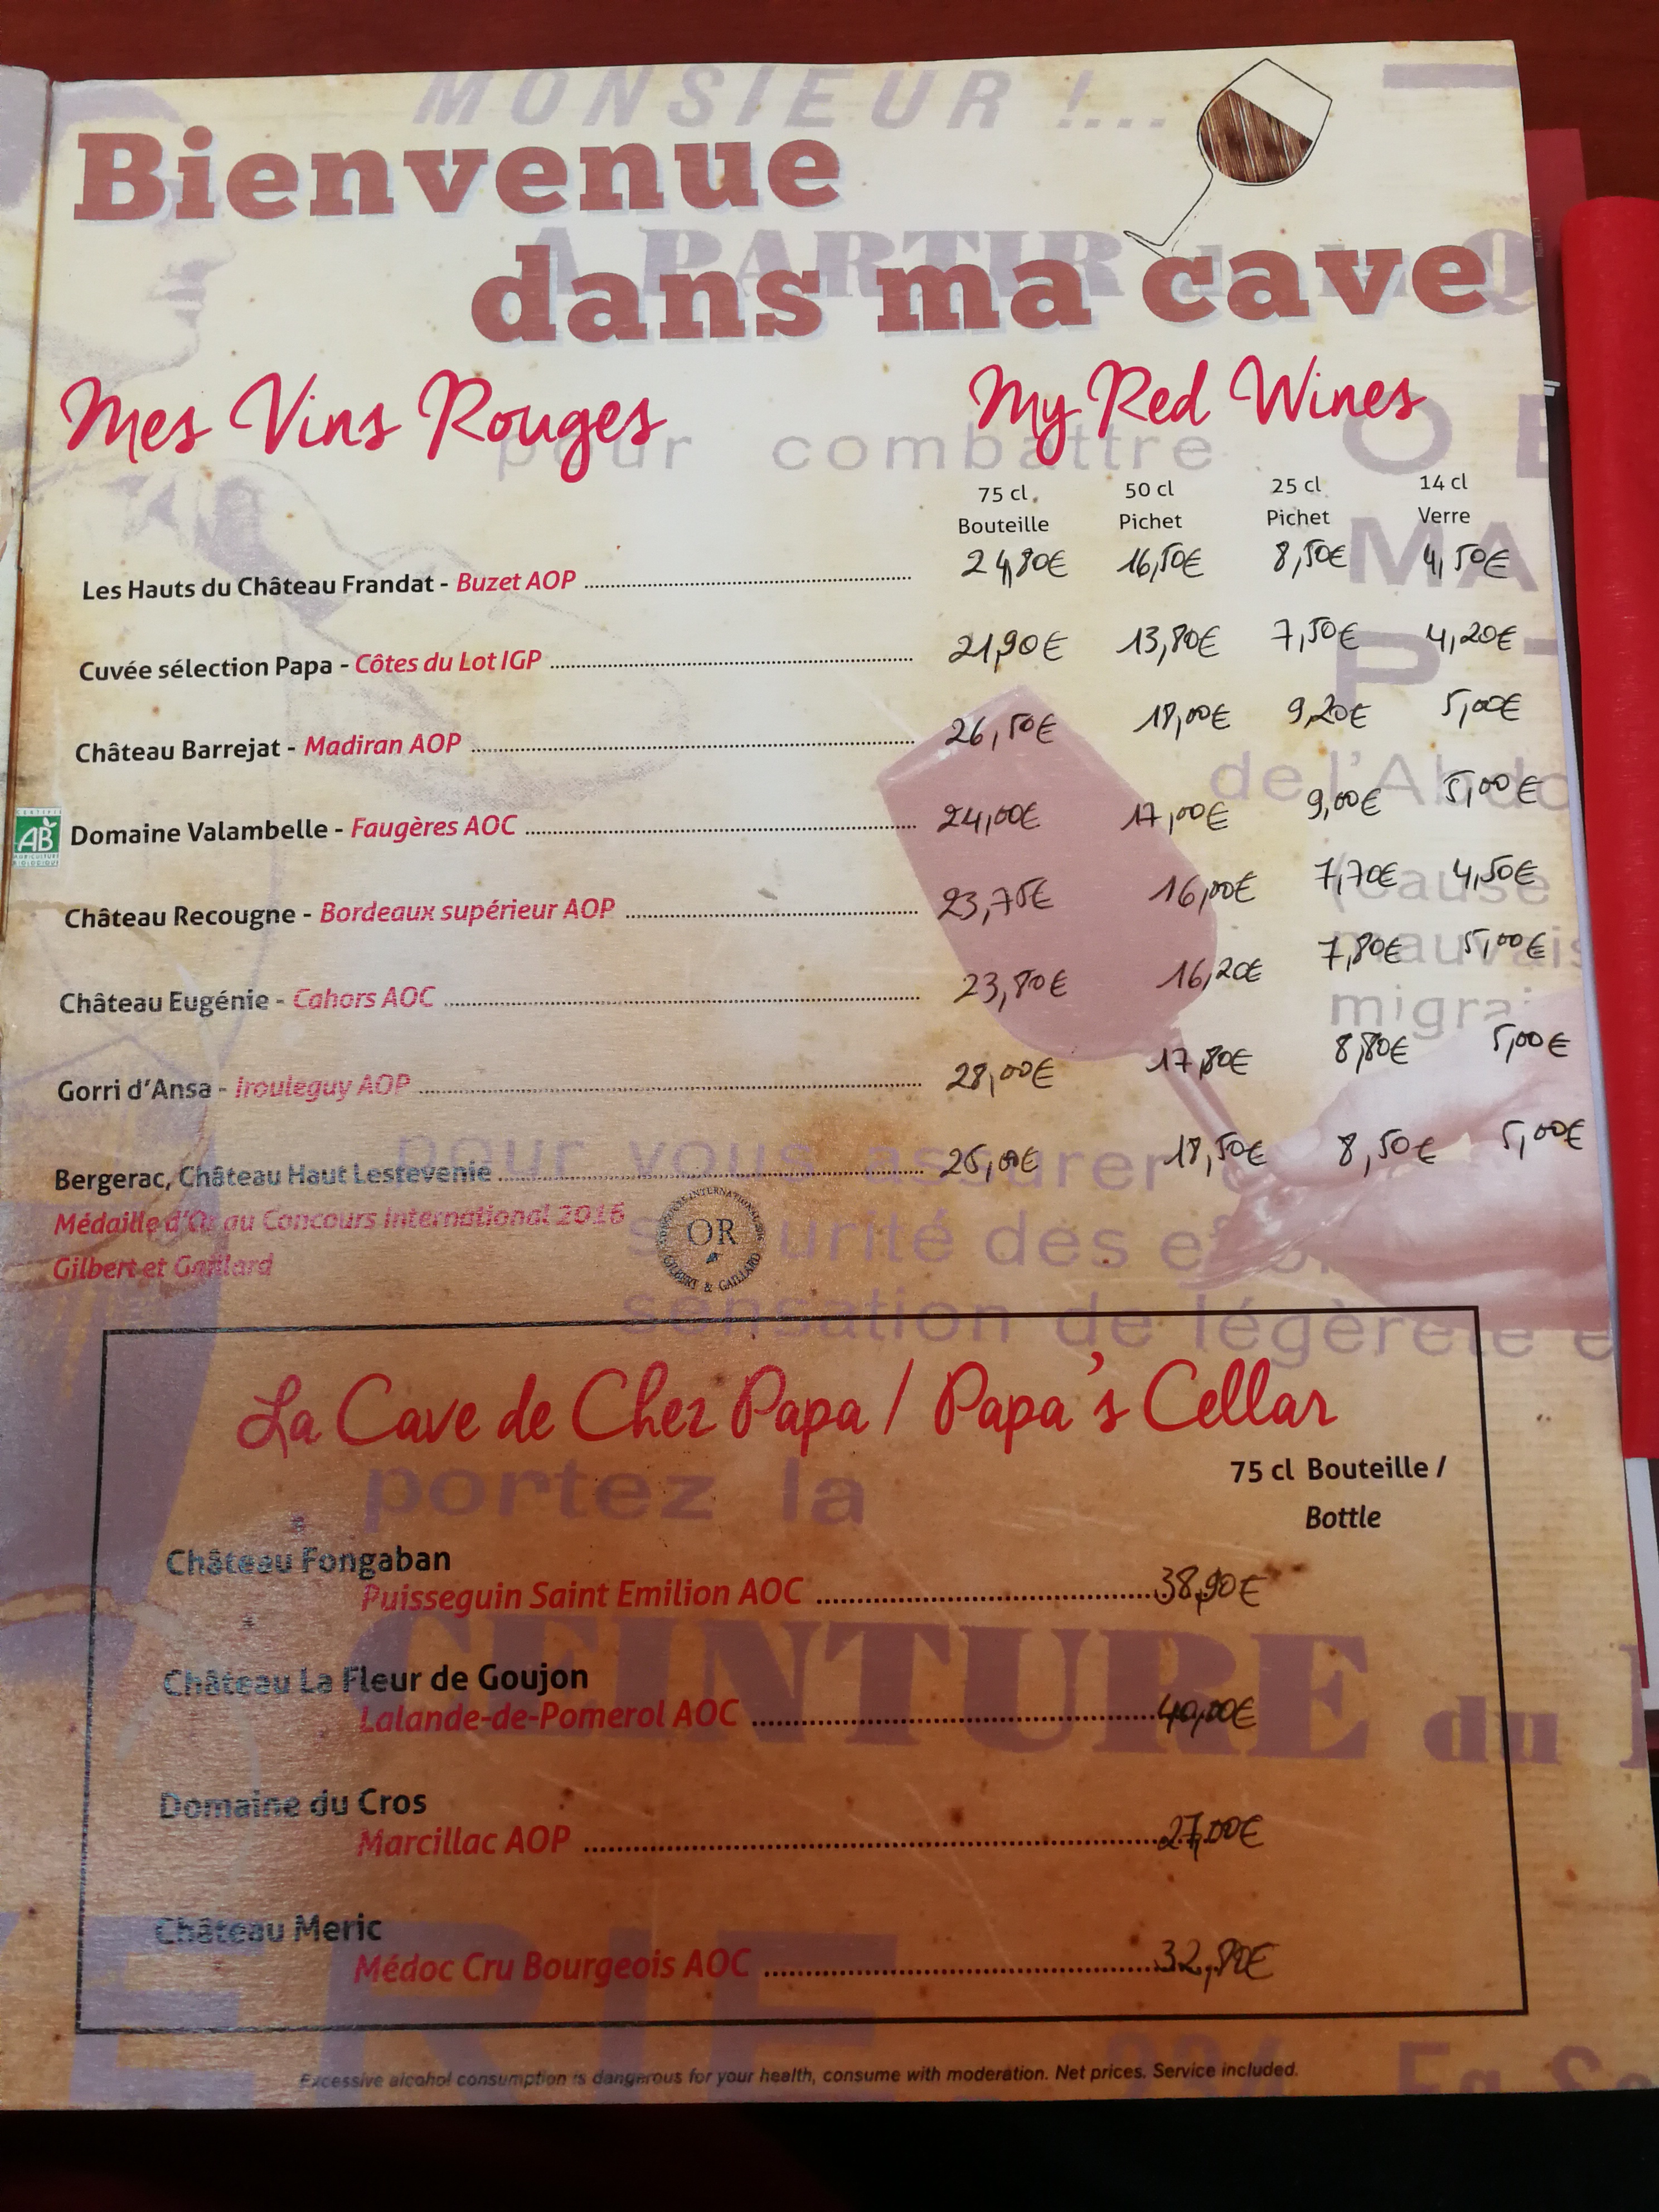 MONSIEUR !...
Bienvenue
A PARTIR
dans ma cave
Mes Vins Rouges
My Red Wines
pour combattre
75 cl 50 cl 25 cl 14 cl
Bouteille Pichet Pichet Verre
Les Hauts du Château Frandat - Buzet AOP 24,80€ 16,50€ 8,50€ 4,50€
Cuvée sélection Papa - Côtes du Lot IGP 21,90€ 13,80€ 7,50€ 4,20€
Château Barrejat - Madiran AOP 26,50€ 18,00€ 9,20€ 5,00€
de l'Abdo
CERTIFIÉ
AB
AGRICULTURE
BIOLOGIQUE
Domaine Valambelle - Faugères AOC 24,00€ 17,00€ 9,00€ 5,00€
(cause
Château Recougne - Bordeaux supérieur AOP 23,75€ 16,00€ 7,70€ 4,50€
mauvais
Château Eugénie - Cahors AOC 23,80€ 16,20€ 7,80€ 5,00€
migrai
Gorri d'Ansa - Irouleguy AOP 28,00€ 17,80€ 8,80€ 5,00€
pour vous assurer
Bergerac, Château Haut Lestevenie 26,00€ 18,50€ 8,50€ 5,00€
Médaille d'Or au Concours International 2016
Gilbert et Gaillard
OR
GILBERT & GAILLARD
urité des
sensation de légèreté e
La Cave de Chez Papa / Papa's Cellar
75 cl Bouteille /
Bottle
portez la
Château Fongaban
Puisseguin Saint Emilion AOC 38,90€
CEINTURE du
Château La Fleur de Goujon
Lalande-de-Pomerol AOC 40,00€
Domaine du Cros
Marcillac AOP 27,00€
Château Meric
Médoc Cru Bourgeois AOC 32,80€
Excessive alcohol consumption is dangerous for your health, consume with moderation. Net prices. Service included.